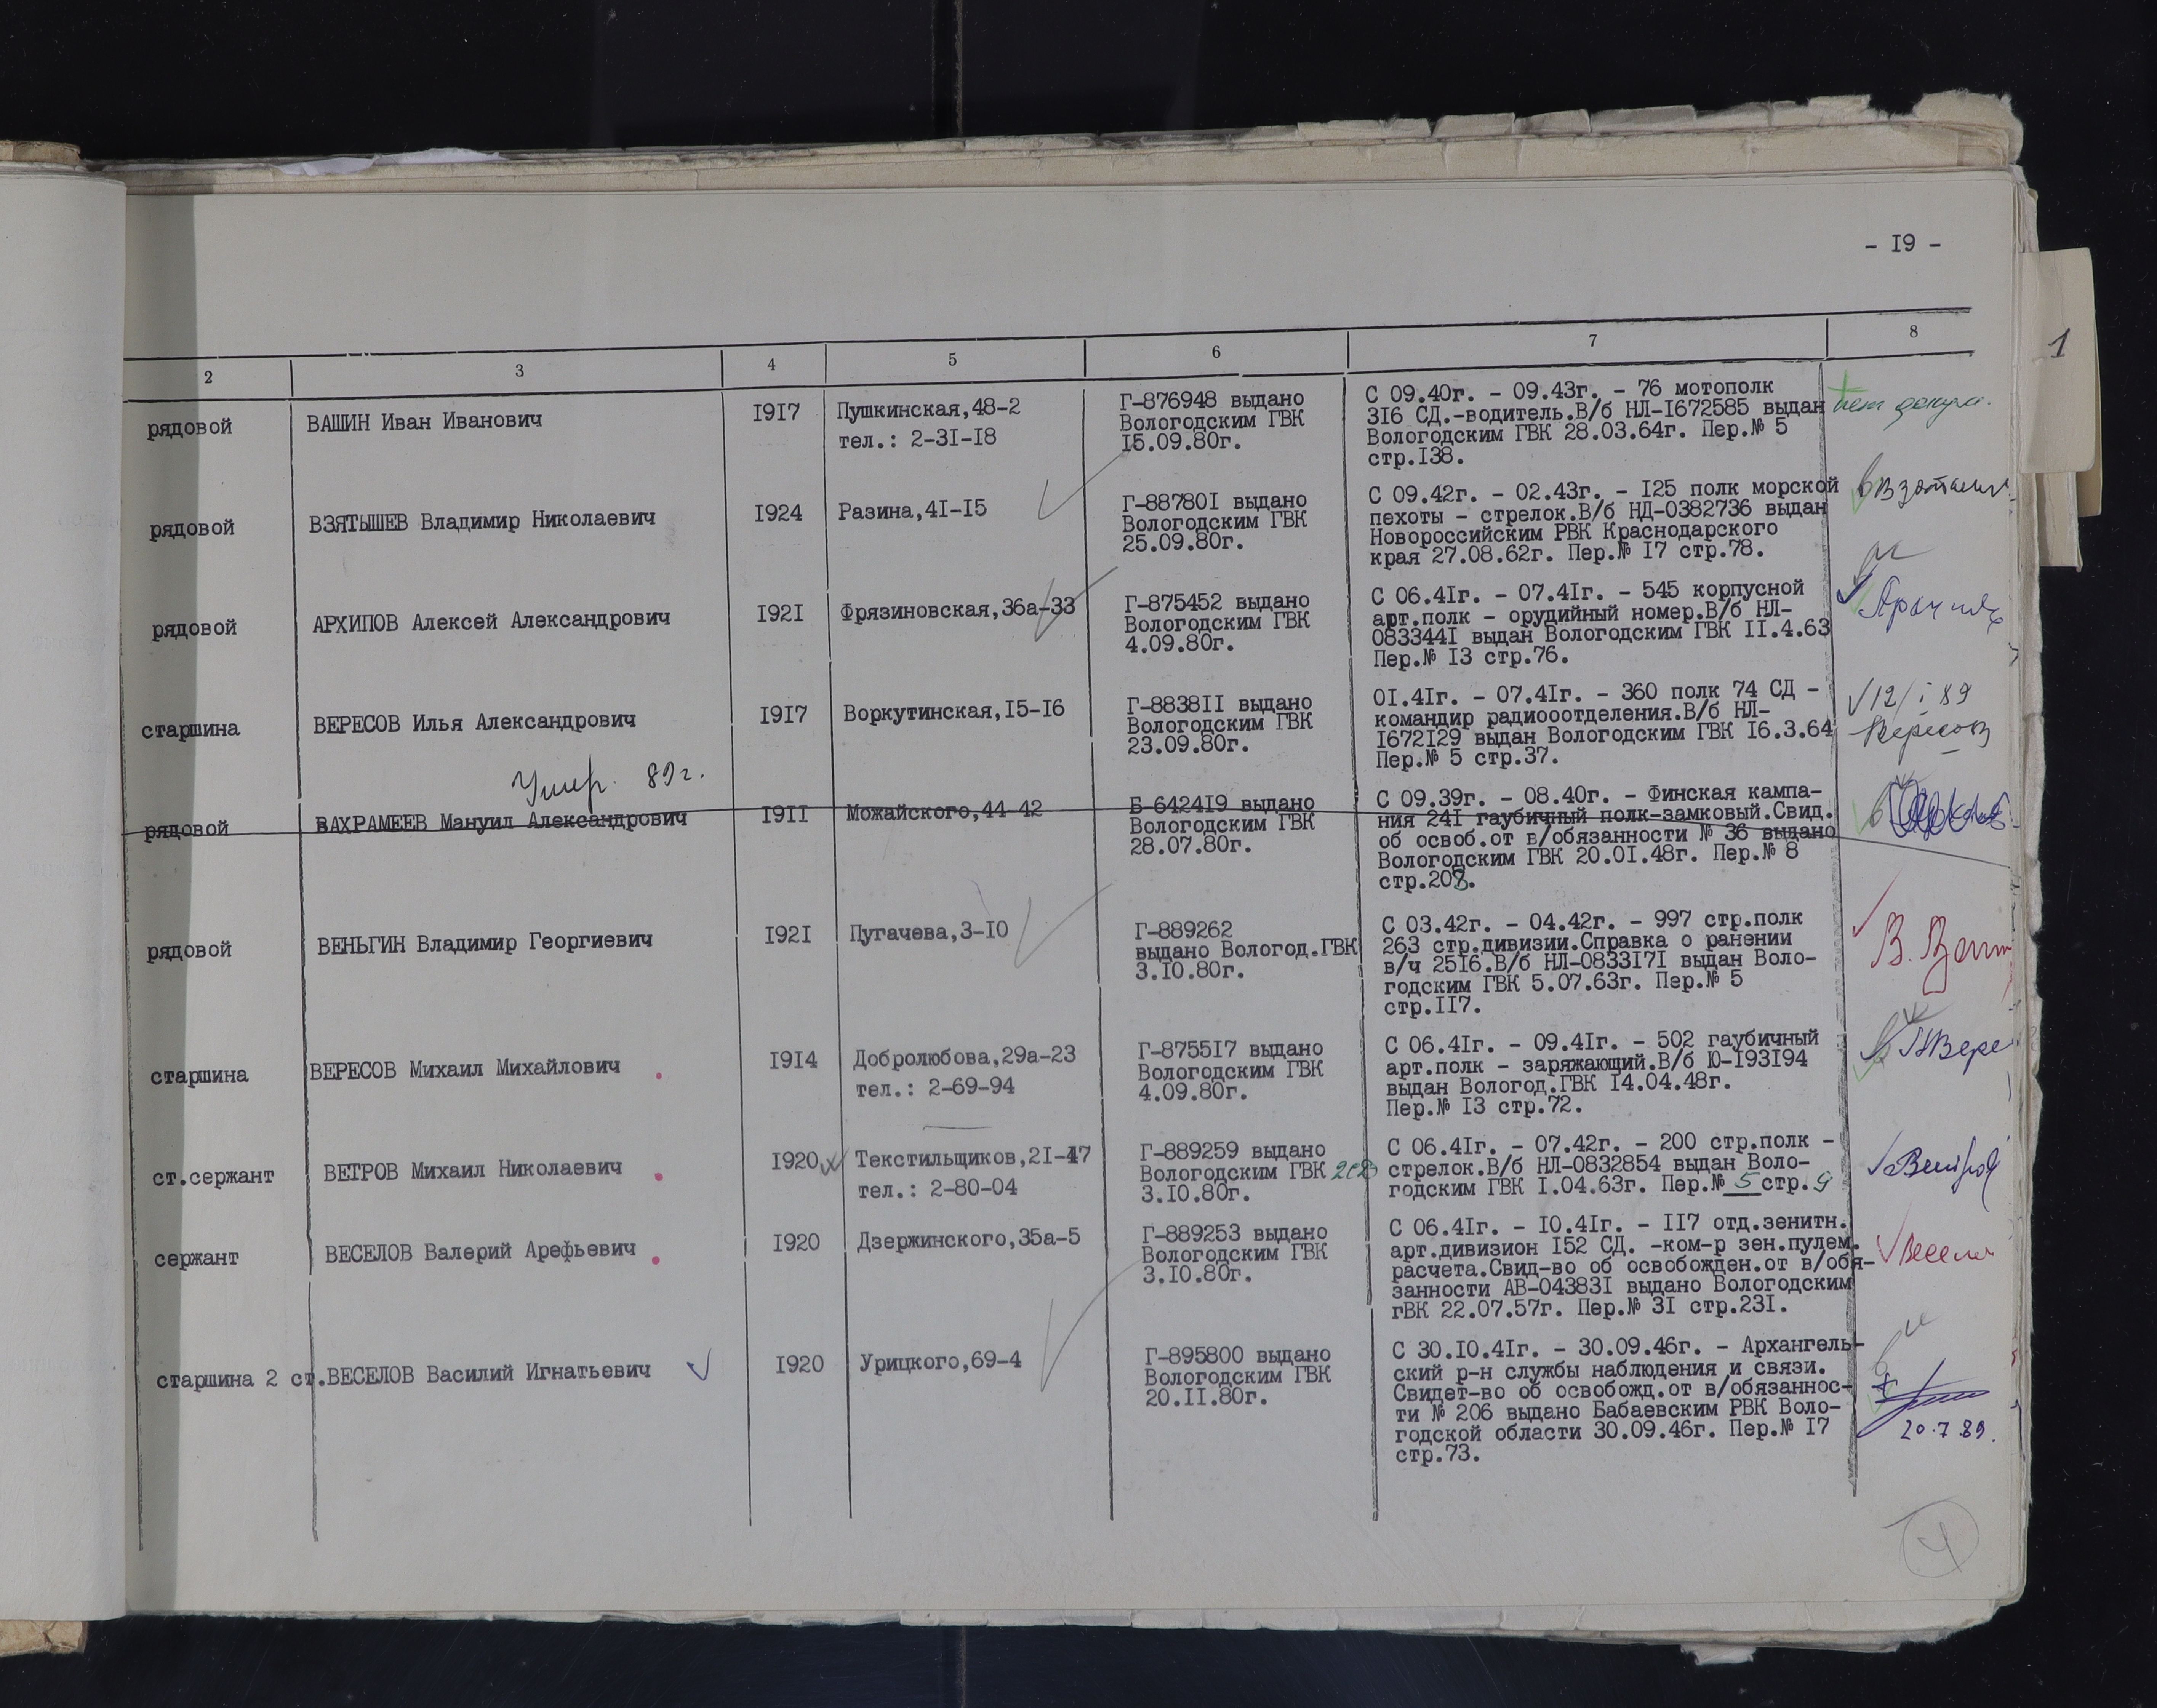 - I9 -
1
2 3 4 5 6 7 8
рядовой
ВАШИН Иван Иванович
I9I7
Пушкинская,48-2
тел.: 2-3I-I8
Г-876948 выдано
Вологодским ГВК
I5.09.80г.
С 09.40г. - 09.43г. - 76 мотополк
3I6 СД.-водитель.В/б НЛ-I672585 выдан
Вологодским ГВК 28.03.64г. Пер.№ 5
стр.I38.
нет докум.
рядовой
ВЗЯТЫШЕВ Владимир Николаевич
I924
Разина,4I-I5
Г-88780I выдано
Вологодским ГВК
25.09.80г.
С 09.42г. - 02.43г. - I25 полк морской
пехоты - стрелок.В/б НД-0382736 выдан
Новороссийским РВК Краснодарского
края 27.08.62г. Пер.№ I7 стр.78.
рядовой
АРХИПОВ Алексей Александрович
I92I
Фрязиновская,36а-33
Г-875452 выдано
Вологодским ГВК
4.09.80г.
С 06.4Iг. - 07.4Iг. - 545 корпусной
арт.полк - орудийный номер.В/б НЛ-
083344I выдан Вологодским ГВК II.4.63
Пер.№ I3 стр.76.
старшина
ВЕРЕСОВ Илья Александрович
I9I7
Воркутинская,I5-I6
Г-8838II выдано
Вологодским ГВК
23.09.80г.
0I.4Iг. - 07.4Iг. - 360 полк 74 СД -
командир радиооотделения.В/б НЛ-
I672I29 выдан Вологодским ГВК I6.3.64
Пер.№ 5 стр.37.
12/I 89
Вересов
Умер. 89г.
рядовой
ВАХРАМЕЕВ Мануил Александрович
I9II
Можайского,44-42
Б-6424I9 выдано
Вологодским ГВК
28.07.80г.
С 09.39г. - 08.40г. - Финская кампа-
ния 24I гаубичный полк-замковый.Свид.
об освоб.от в/обязанности № 36 выдано
Вологодским ГВК 20.0I.48г. Пер.№ 8
стр.208.
рядовой
ВЕНЬГИН Владимир Георгиевич
I92I
Пугачева,3-I0
Г-889262
выдано Вологод.ГВК
3.I0.80г.
С 03.42г. - 04.42г. - 997 стр.полк
263 стр.дивизии.Справка о ранении
в/ч 25I6.В/б НЛ-0833I7I выдан Воло-
годским ГВК 5.07.63г. Пер.№ 5
стр.II7.
старшина
ВЕРЕСОВ Михаил Михайлович
I9I4
Добролюбова,29а-23
тел.: 2-69-94
Г-8755I7 выдано
Вологодским ГВК
4.09.80г.
С 06.4Iг. - 09.4Iг. - 502 гаубичный
арт.полк - заряжающий.В/б Ю-I93I94
выдан Вологод.ГВК I4.04.48г.
Пер.№ I3 стр.72.
ст.сержант
ВЕТРОВ Михаил Николаевич
I920
Текстильщиков,2I-47
тел.: 2-80-04
Г-889259 выдано
Вологодским ГВК
3.I0.80г.
С 06.4Iг. - 07.42г. - 200 стр.полк -
стрелок.В/б НЛ-0832854 выдан Воло-
годским ГВК I.04.63г. Пер.№ 5 стр.9
сержант
ВЕСЕЛОВ Валерий Арефьевич
I920
Дзержинского,35а-5
Г-889253 выдано
Вологодским ГВК
3.I0.80г.
С 06.4Iг. - I0.4Iг. - II7 отд.зенитн.
арт.дивизион I52 СД. -ком-р зен.пулем.
расчета.Свид-во об освобожден.от в/обя-
занности АВ-04383I выдано Вологодским
гВК 22.07.57г. Пер.№ 3I стр.23I.
старшина 2 ст.
ВЕСЕЛОВ Василий Игнатьевич
I920
Урицкого,69-4
Г-895800 выдано
Вологодским ГВК
20.II.80г.
С 30.I0.4Iг. - 30.09.46г. - Архангель-
ский р-н службы наблюдения и связи.
Свидет-во об освобожд.от в/обязаннос-
ти № 206 выдано Бабаевским РВК Воло-
годской области 30.09.46г. Пер.№ I7
стр.73.
20.7.89.